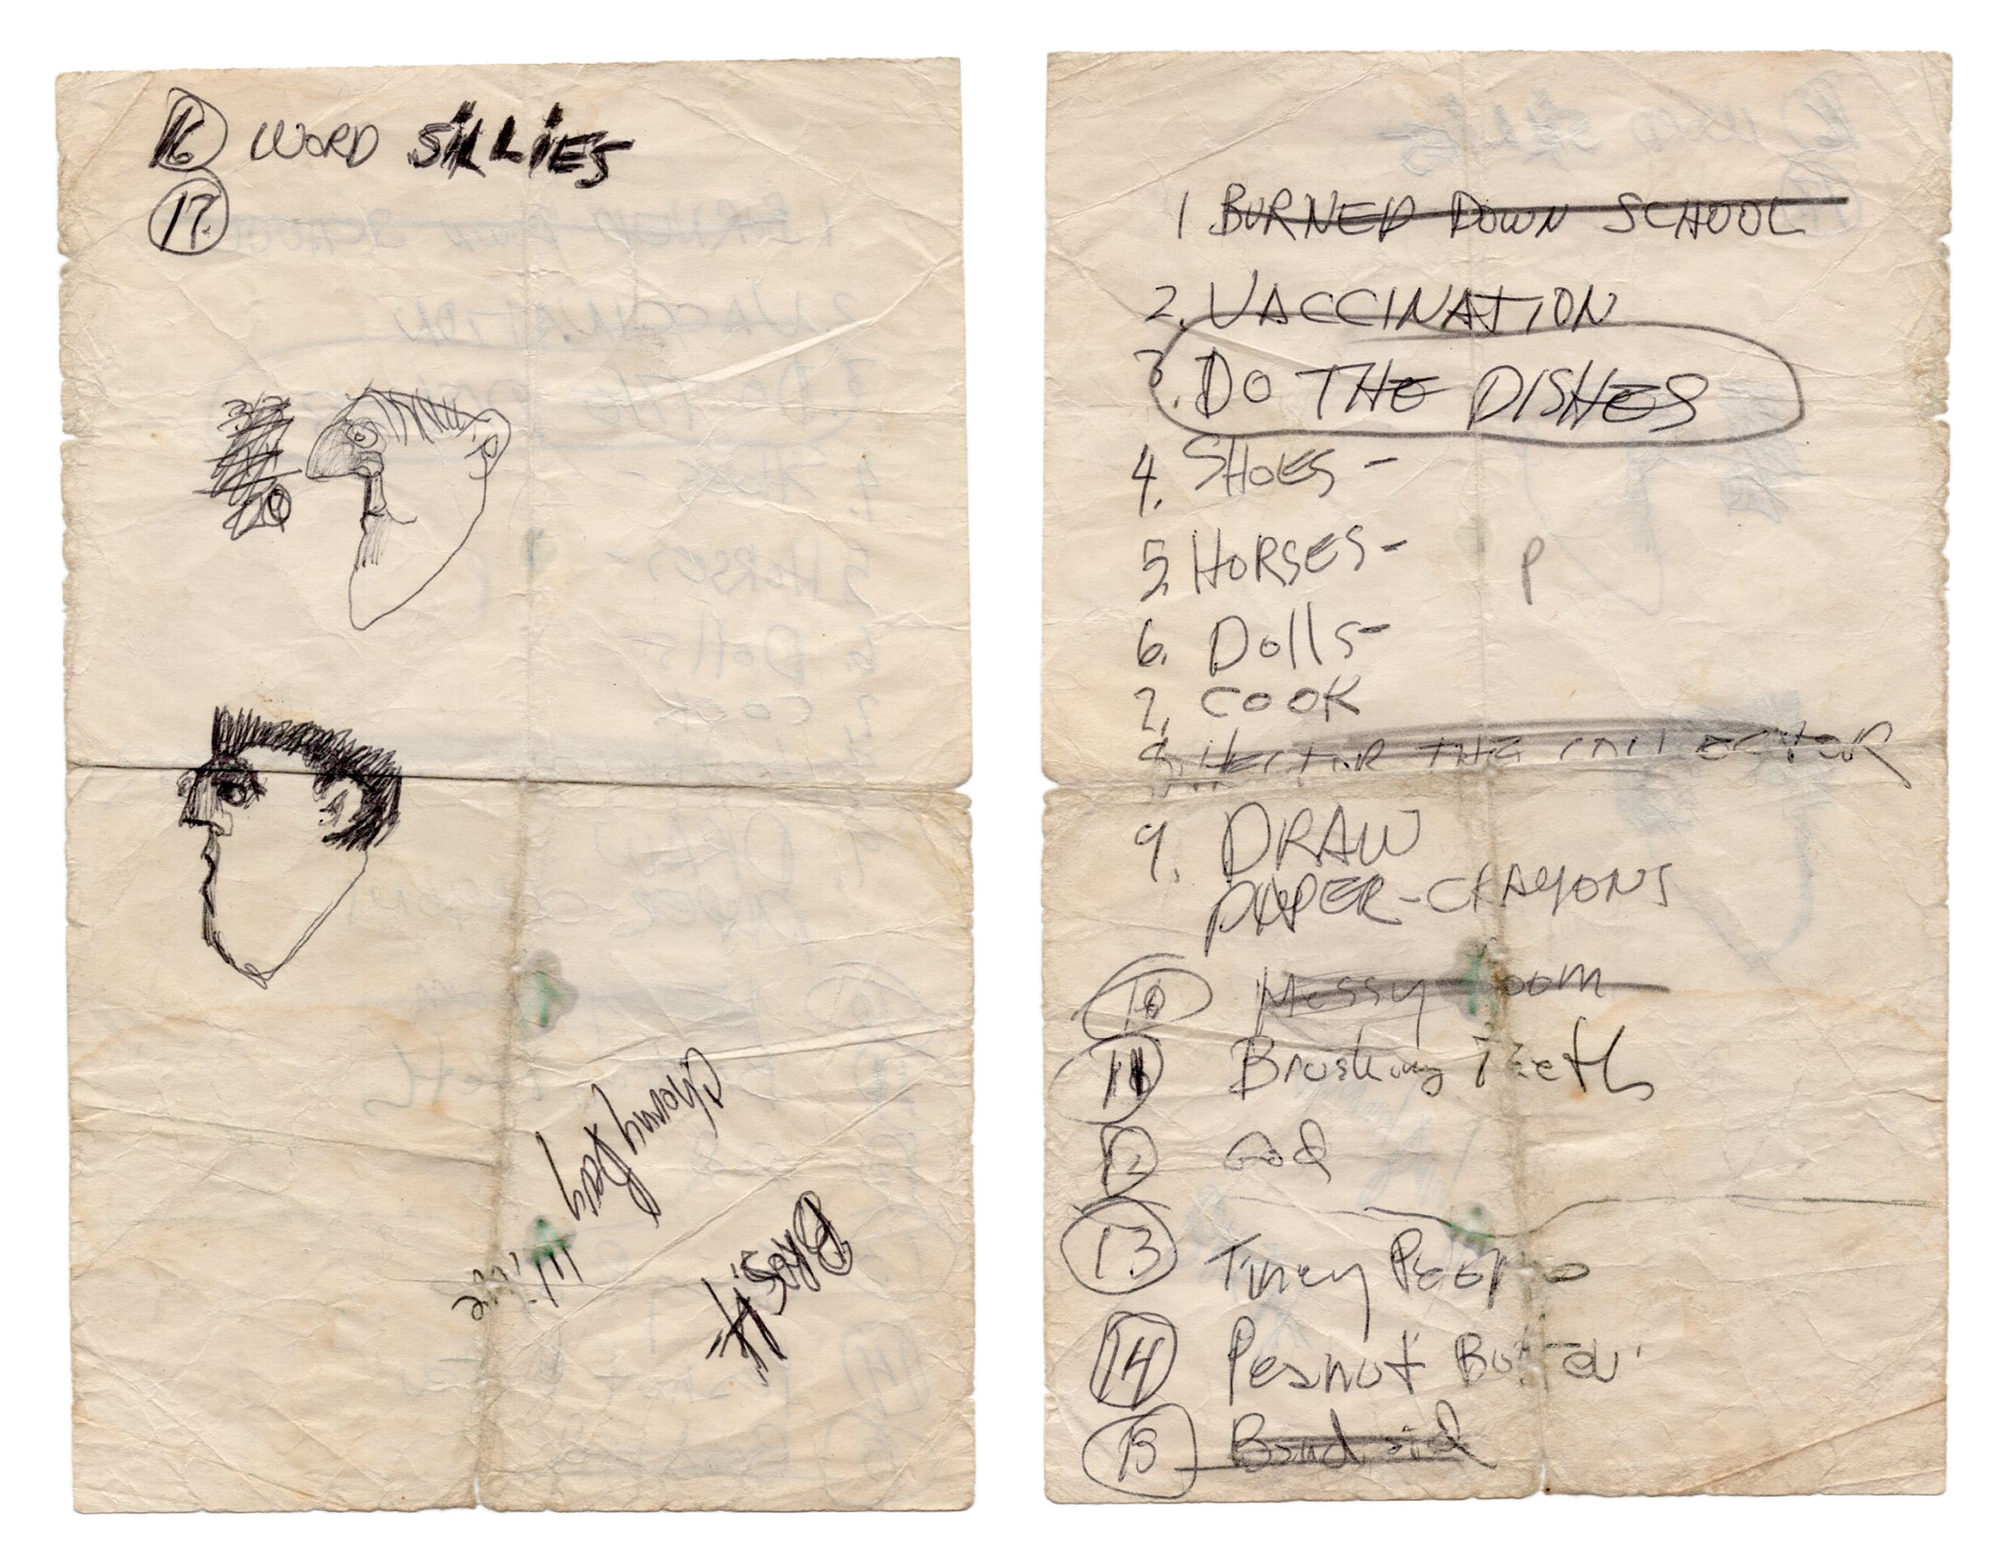 16 WORD SILLIES
17.
1 BURNED DOWN SCHOOL
2. VACCINATION
3. DO THE DISHES
4. SHOES -
5. HORSES -
P
6. Dolls -
7. COOK
8. HECTOR THE COLLECTOR
9. DRAW
PAPER-CRAYONS
10 Messy Room
11 Brushing Teeth
12
13 Tiney People
14 Peanut Butter
15 Bandaid